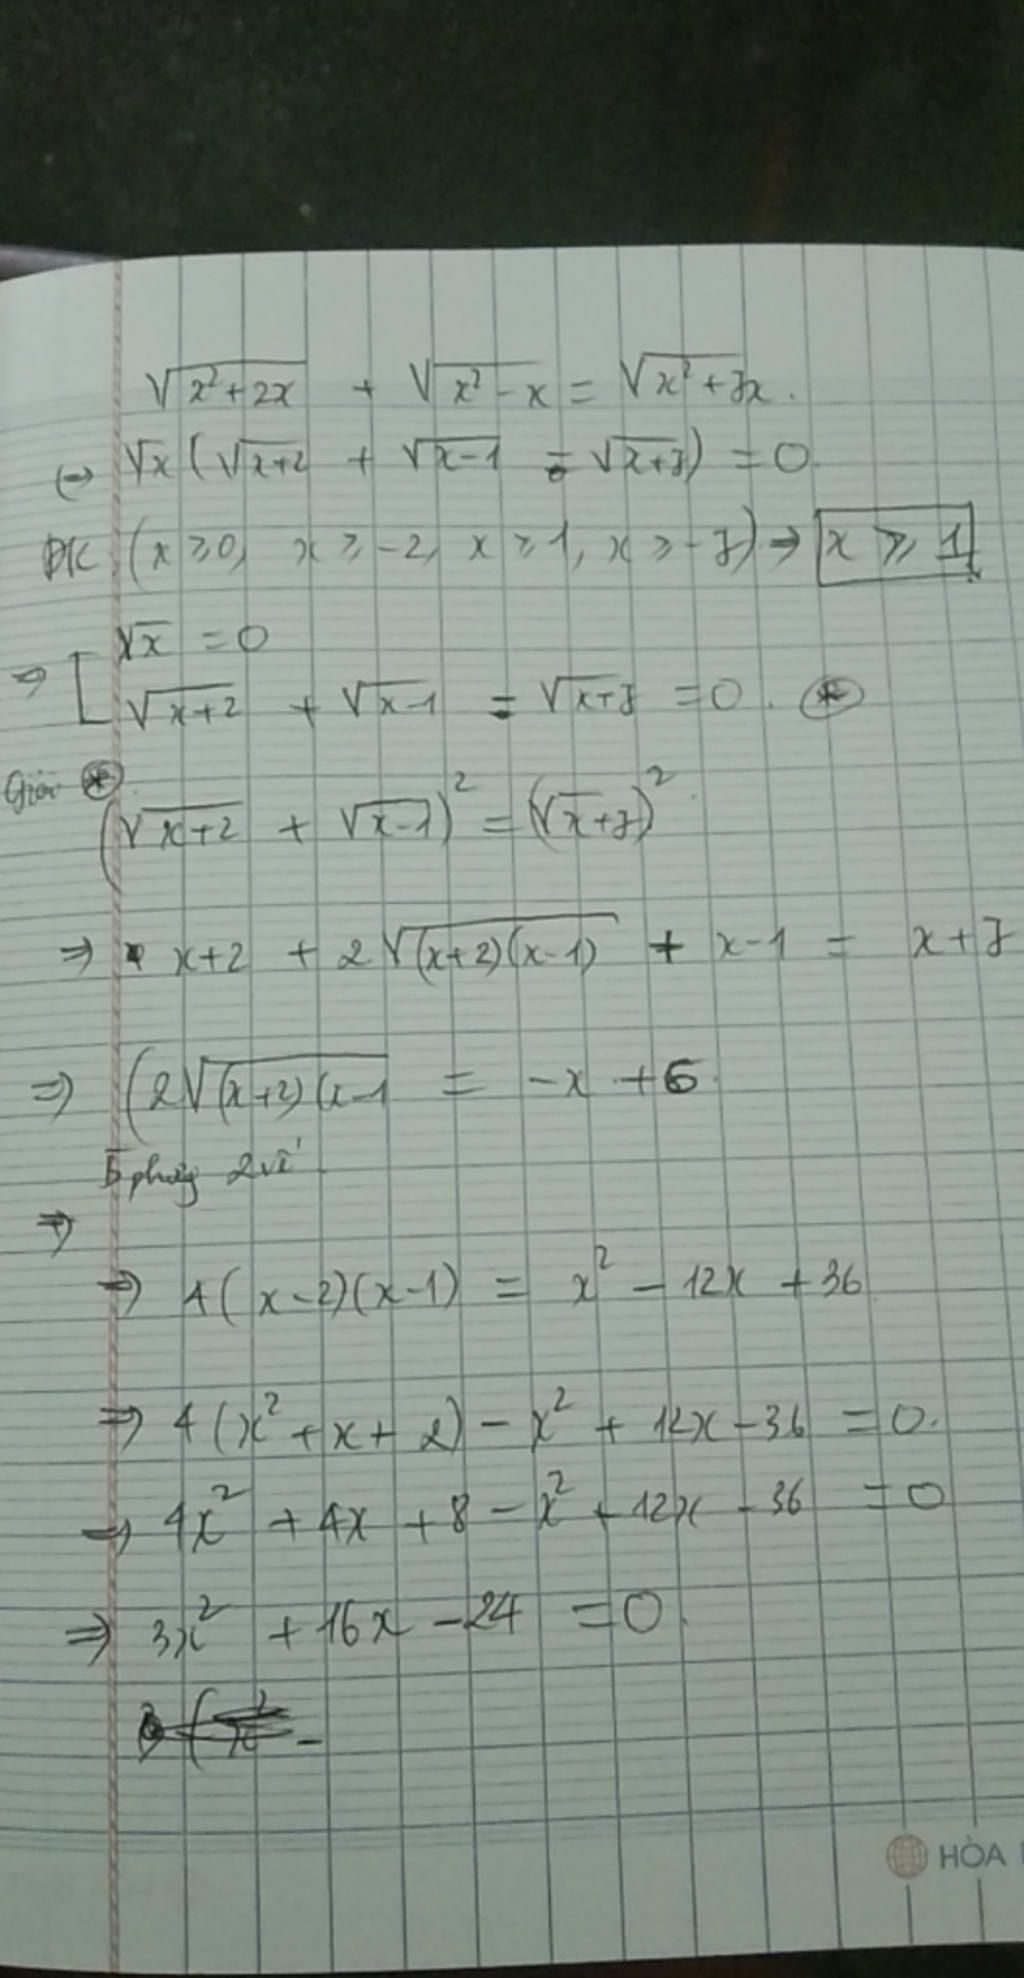 √(x²+2x) + √(x²-x) = √(x²+7x).
(→ √x (√(x+2) + √(x-1) - √(x+7)) = 0
ĐK (x ≥ 0, x ≥ -2, x ≥ 1, x ≥ -7) → x ≥ 1
⇒ [ √x = 0
√(x+2) + √(x-1) - √(x+7) = 0. (*)
Giải (*)
(√(x+2) + √(x-1))² = (√(x+7))².
⇒ x+2 + 2√((x+2)(x-1)) + x-1 = x+7
⇒ (2√((x+2)(x-1) = -x + 6.
B phương 2 vế
⇒
⇒ 4(x-2)(x-1) = x² - 12x + 36
⇒ 4(x² + x + 2) - x² + 12x - 36 = 0.
⇒ 4x² + 4x + 8 - x² + 12x - 36 = 0
⇒ 3x² + 16x - 24 = 0.
HÒA